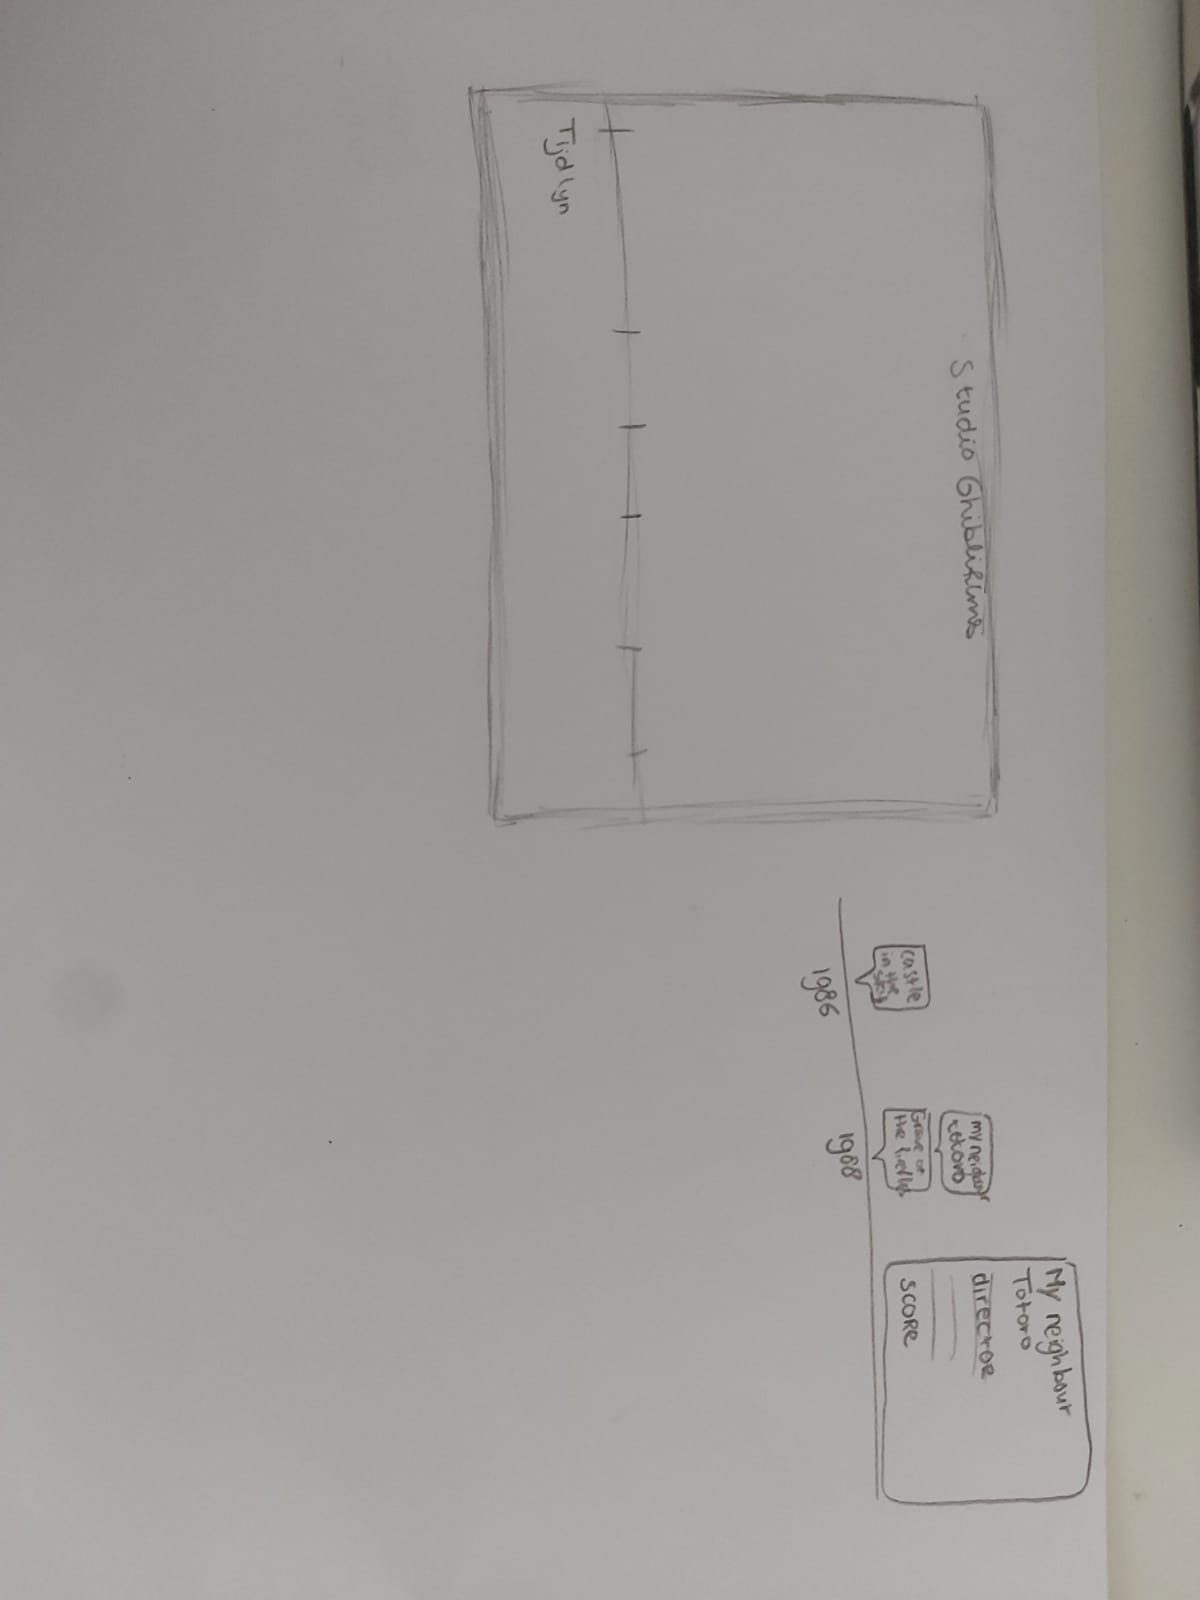 Studio Ghiblifilms
Tijdlyn
castle
in the
sky
1986
my neighbour
totoro
Grave of
the
1988
My neighbour
Totoro
director
score